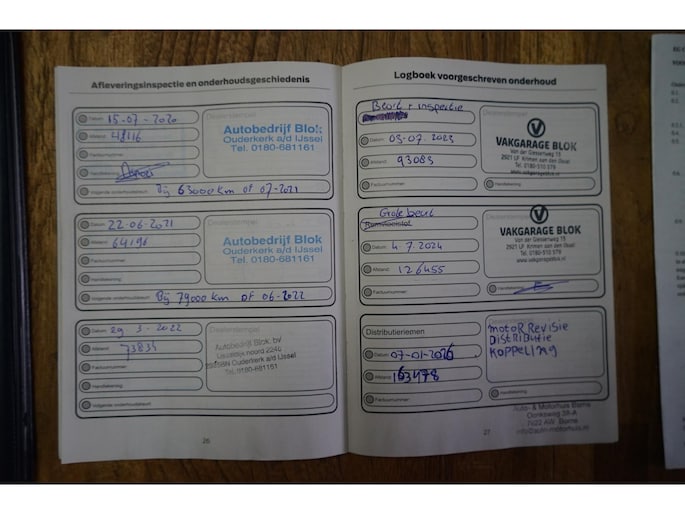 Afleveringsinspectie en onderhoudsgeschiedenis
Datum: 15-07-2020
Afstand: 48116
Factuurnummer:
Handtekening:
Volgende onderhoudsbeurt: Bij 63000 km of 07-2021
Dealerstempel
Autobedrijf Blok
Ouderkerk a/d IJssel
Tel. 0180-681161
Datum: 22-06-2021
Afstand: 64196
Factuurnummer:
Handtekening:
Volgende onderhoudsbeurt: Bij 79000 km of 06-2022
Dealerstempel
Autobedrijf Blok
Ouderkerk a/d IJssel
Tel. 0180-681161
Datum: 29 3-2022
Afstand: 73834
Factuurnummer:
Handtekening:
Volgende onderhoudsbeurt:
Dealerstempel
Autobedrijf Blok bv
IJsseldijk noord 224b
Ouderkerk a/d IJssel
Tel. 0180-681161
26
Logboek voorgeschreven onderhoud
Beurt + inspectie
Datum: 03-07-2023
Afstand: 93085
Factuurnummer:
Dealerstempel
VAKGARAGE BLOK
Van der Giessenweg 15
2921 LP Krimpen aan den IJssel
Tel. 0180-510 379
www.vakgarageblok.nl
Handtekening:
Grote beurt
Datum: 4 7 2024
Afstand: 126455
Factuurnummer:
Dealerstempel
VAKGARAGE BLOK
Van der Giessenweg 15
2921 LP Krimpen aan den IJssel
Tel. 0180-510 379
www.vakgarageblok.nl
Handtekening:
Distributieriemen
Datum: 07-01-2026
Afstand: 163478
Factuurnummer:
Dealerstempel
MOTOR REVISIE
DISTRIBUTIE
KOPPELING
Handtekening:
Auto- & Motorhuis Borne
Oonksweg 39-A
7622 AW Borne
info@auto-motorhuis.nl
27